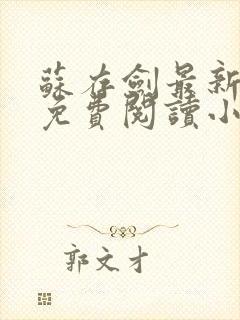 蘇存劍最新
免費閱讀小
郭文才